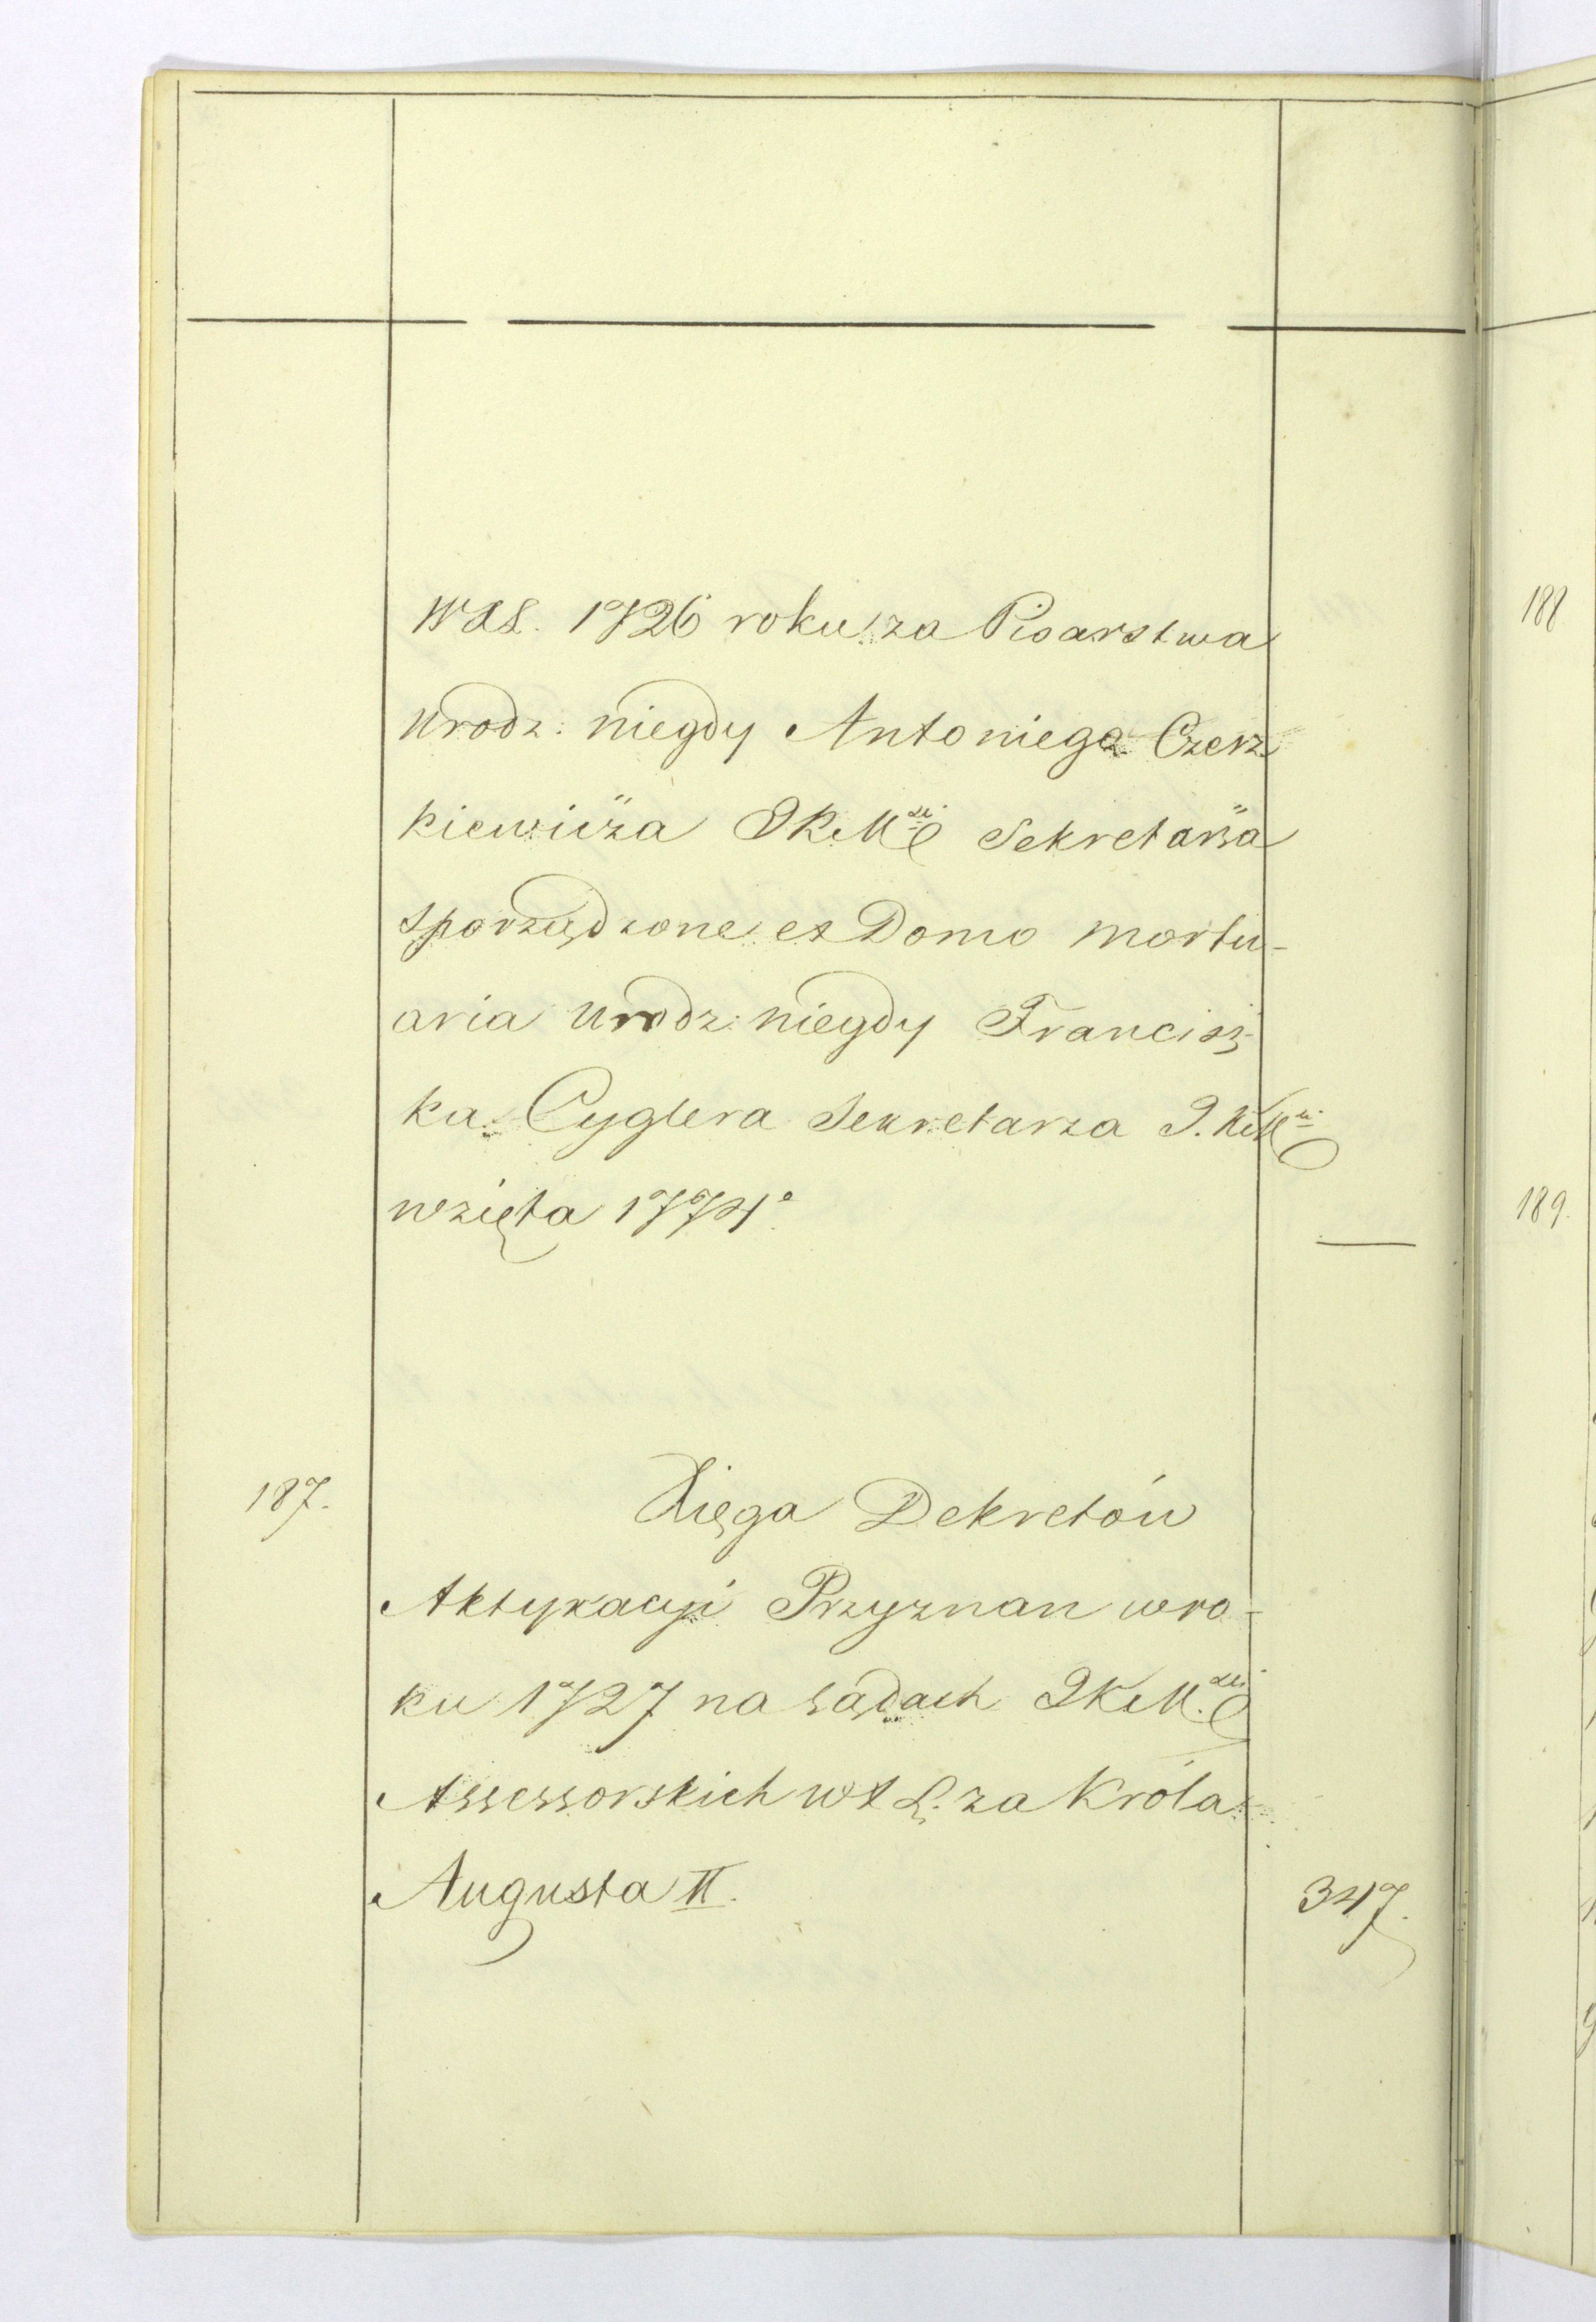 WXL. 1726 roku za Pisarstwa
urodz: niegdy Antoniego Czerz
kiewicza JKMci Sekretarza
sporządzone ex Domo mortu-
aria urodz: niegdy Francisz-
ka Cyglera Sekretarza J.KMci
wzięta 1774°.
187. Xięga Dekretów
Aktykacyi Przyznan w ro-
ku 1727 na sądach JKM.ci
Assessorskich w X L. za Króla
Augusta II. 347.
188
189.